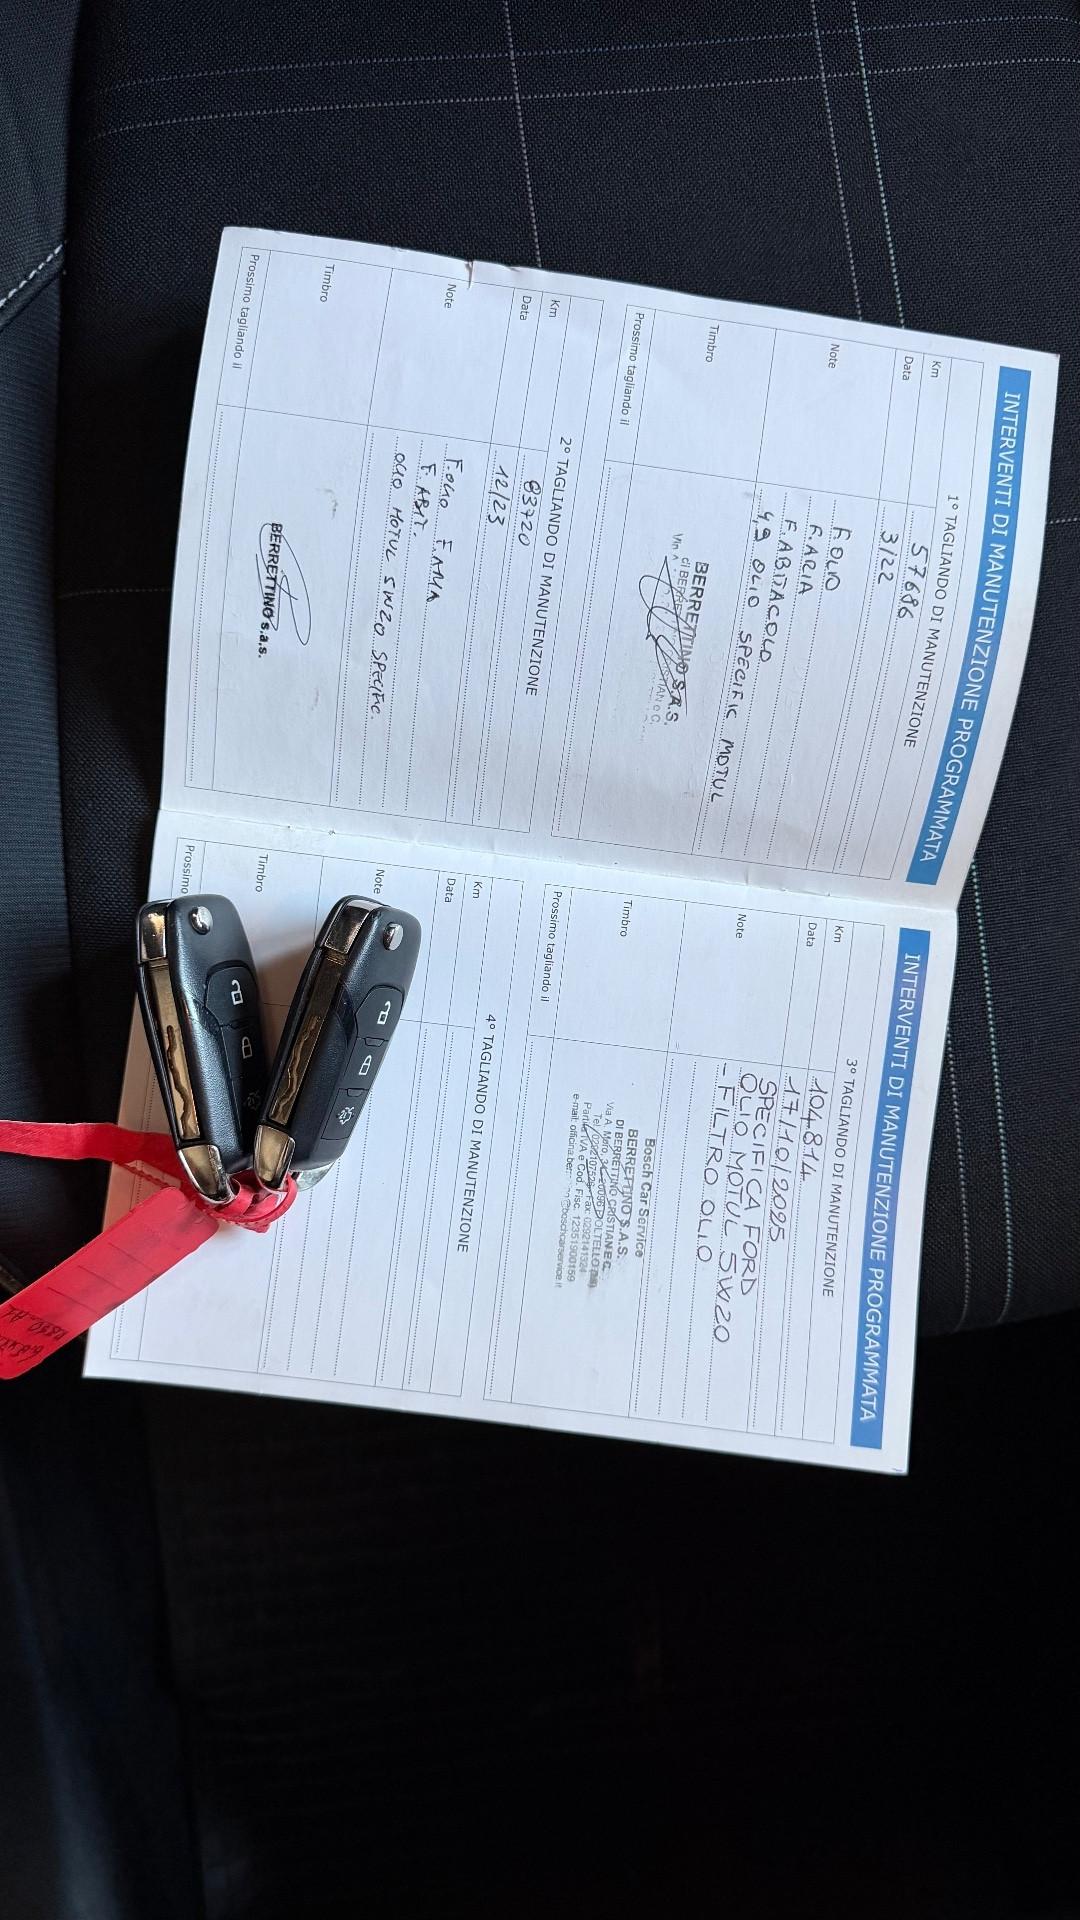 INTERVENTI DI MANUTENZIONE PROGRAMMATA
1° TAGLIANDO DI MANUTENZIONE
Km 57686
Data 3/22
Note F.OLIO
F.ARIA
F.ABITACOLO
4,9 OLIO SPECIFIC MOTUL
Timbro
BERRETTINO S.A.S.
Prossimo tagliando il
2° TAGLIANDO DI MANUTENZIONE
Km 83720
Data 12/23
Note F.OLIO F.ARIA
F. ABIT.
OLIO MOTUL 5W20 SPECIFIC.
Timbro
BERRETTINO s.a.s.
Prossimo tagliando il
INTERVENTI DI MANUTENZIONE PROGRAMMATA
3° TAGLIANDO DI MANUTENZIONE
Km 104.814
Data 17/10/2025
Note SPECIFICA FORD
OLIO MOTUL 5W20
- FILTRO OLIO
Timbro
Bosch Car Service
BERRETTINO S.A.S.
DI BERRETTINO CRISTIAN E C.
Via A. Moro, PIOLTELLO
Tel. Fax. 0292141324
Partita IVA e Cod. Fisc. 12351900159
e-mail: officina.
Prossimo tagliando il
4° TAGLIANDO DI MANUTENZIONE
Km
Data
Note
Timbro
Prossimo